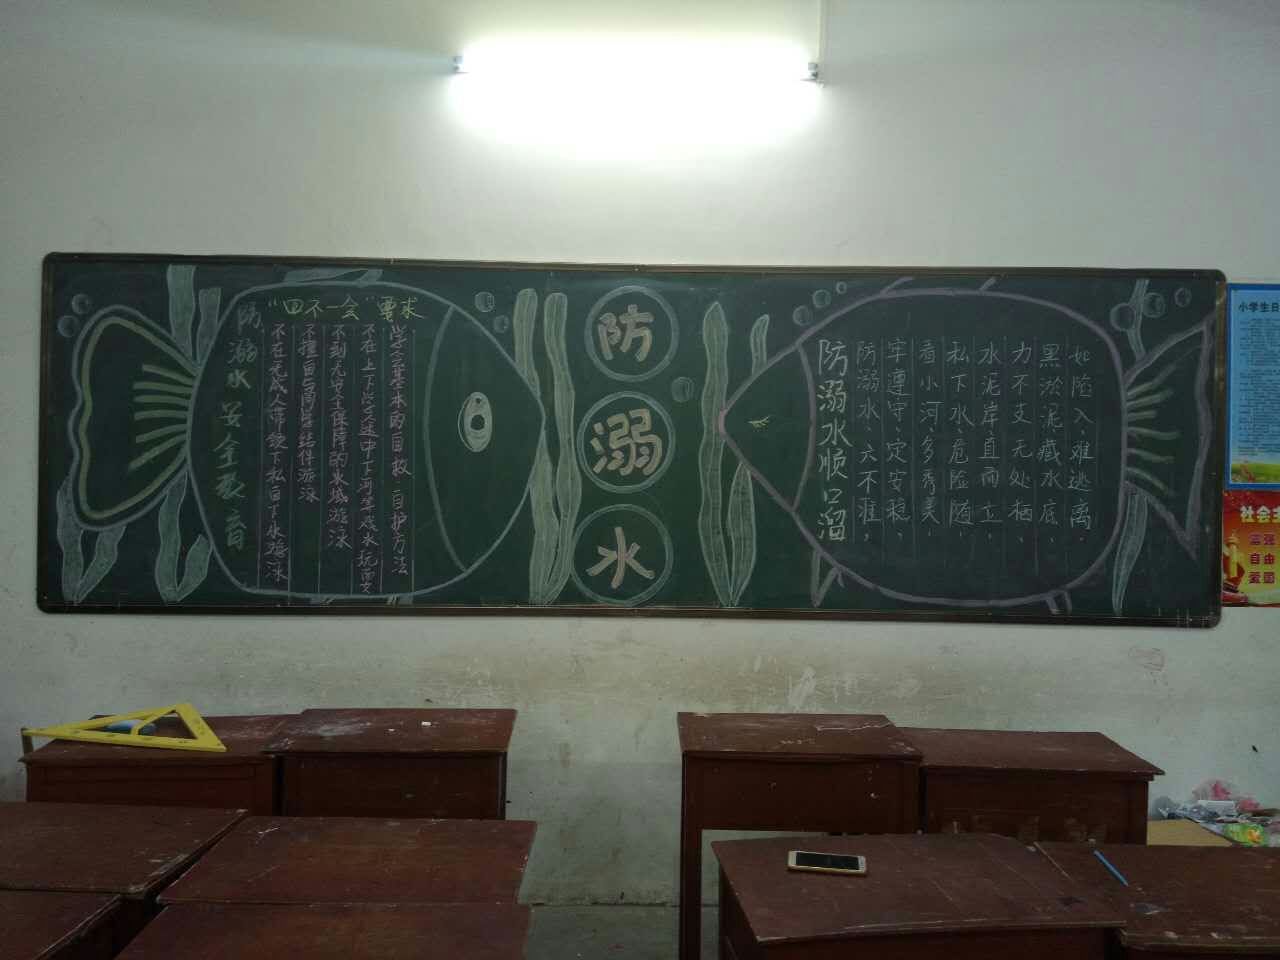 防溺水安全教育
"四不一会"要求
不在无成人带领下私自下水游泳
不擅自与同学结伴游泳
不到无安全保障的水域游泳
不在上下学途中下河生戏水玩耍
学会基本的自救、自护方法
防
溺
水
防溺水顺口溜
防溺水,六不准,
牢遵守,定安稳,
看小河,多秀美,
私下水,危险随,
水泥岸,直而立,
力不支,无处栖、
黑淤泥,藏水底、
如陷入,难逃离.
小学生日
社会主
富强
自由
爱国